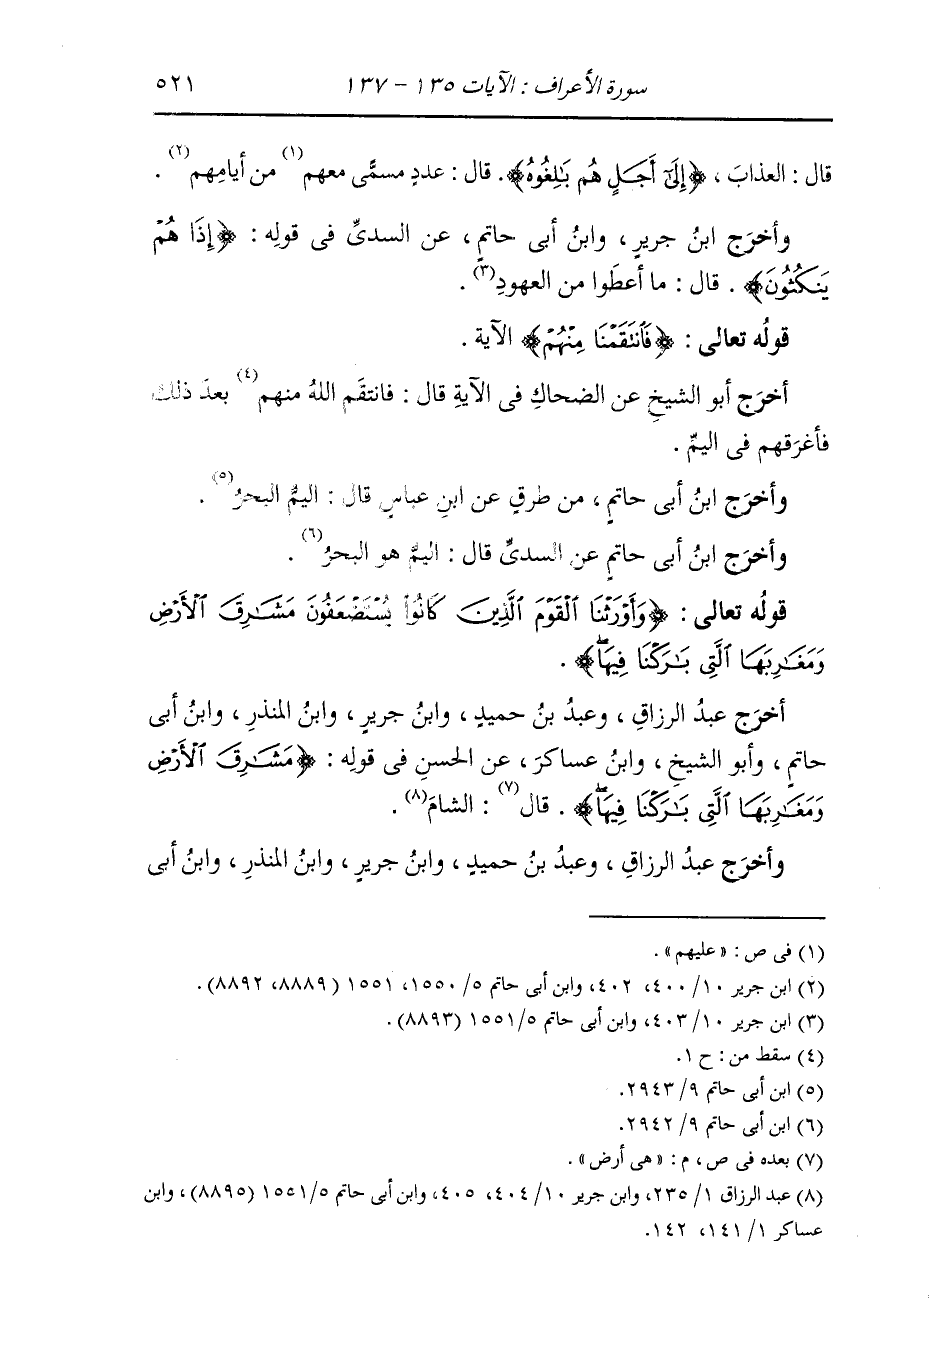 سورة الأعراف : الآيات ١٣٥ - ١٣٧ ٥٢١
قال : العذابَ ، ﴿إِلَىٰٓ أَجَلٍ هُم بَٰلِغُوهُ﴾. قال : عددٍ مسمًّى معهم(١) من أيامِهم(٢) .
وأخرَج ابنُ جريرٍ ، وابنُ أبى حاتمٍ ، عن السدىِّ فى قولِه : ﴿إِذَا هُمْ
يَنكُثُونَ﴾ . قال : ما أعطَوا من العهودِ(٣) .
قولُه تعالى : ﴿فَٱنتَقَمْنَا مِنْهُمْ﴾ الآية .
أخرَج أبو الشيخِ عن الضحاكِ فى الآيةِ قال : فانتقَم اللهُ منهم(٤) بعدَ ذلك،
فأغرَقهم فى اليمِّ .
وأخرَج ابنُ أبى حاتمٍ ، من طرقٍ عن ابنِ عباسٍ قال : اليمُّ البحرُ(٥) .
وأخرَج ابنُ أبى حاتمٍ عن السدىِّ قال : اليمُّ هو البحرُ(٦) .
قولُه تعالى : ﴿وَأَوْرَثْنَا ٱلْقَوْمَ ٱلَّذِينَ كَانُوا۟ يُسْتَضْعَفُونَ مَشَٰرِقَ ٱلْأَرْضِ
وَمَغَٰرِبَهَا ٱلَّتِى بَٰرَكْنَا فِيهَاۖ﴾ .
أخرَج عبدُ الرزاقِ ، وعبدُ بنُ حميدٍ ، وابنُ جريرٍ ، وابنُ المنذرِ ، وابنُ أبى
حاتمٍ ، وأبو الشيخِ ، وابنُ عساكرَ ، عن الحسنِ فى قولِه : ﴿مَشَٰرِقَ ٱلْأَرْضِ
وَمَغَٰرِبَهَا ٱلَّتِى بَٰرَكْنَا فِيهَاۖ﴾ . قال(٧) : الشامَ(٨) .
وأخرَج عبدُ الرزاقِ ، وعبدُ بنُ حميدٍ ، وابنُ جريرٍ ، وابنُ المنذرِ ، وابنُ أبى
(١) فى ص : «عليهم» .
(٢) ابن جرير ١٠/ ٤٠٠، ٤٠٢، وابن أبى حاتم ٥/ ١٥٥٠، ١٥٥١ (٨٨٨٩، ٨٨٩٢).
(٣) ابن جرير ١٠/ ٤٠٣، وابن أبى حاتم ٥/ ١٥٥١ (٨٨٩٣).
(٤) سقط من : ح ١.
(٥) ابن أبى حاتم ٩/ ٢٩٤٣.
(٦) ابن أبى حاتم ٩/ ٢٩٤٢.
(٧) بعده فى ص ، م : «هى أرض» .
(٨) عبد الرزاق ١/ ٢٣٥، وابن جرير ١٠/ ٤٠٤، ٤٠٥، وابن أبى حاتم ٥/ ١٥٥١ (٨٨٩٥)، وابن
عساكر ١/ ١٤١، ١٤٢.